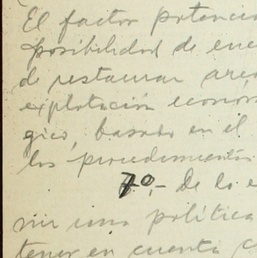 El factor potencio
posibilidad de enc
de restaurar are
explotación económ
gico, basado en el
los procedimientos
7º.- De lo e
nir una política
tener en cuenta c